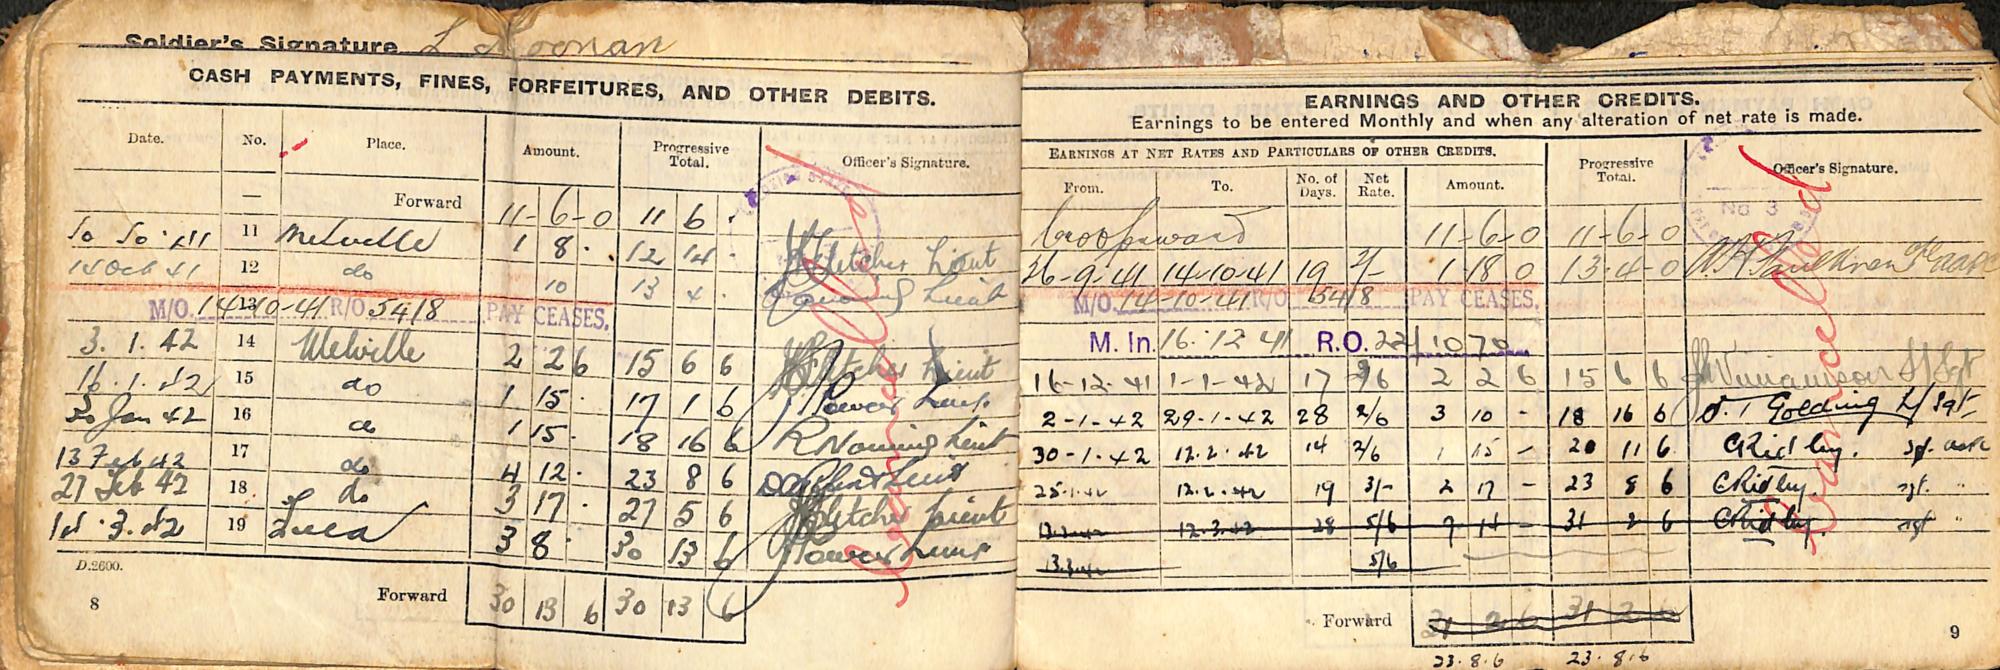 Soldier's Signature L Noonan
CASH PAYMENTS, FINES, FORFEITURES, AND OTHER DEBITS.
Date. No. Place. Amount. Progressive Total. Officer's Signature.
— Forward 11-6-0 11 6 ·
11 Melville 1 8 · 12 14 · Fletcher Lieut
14 Oct 41 12 do 10 13 4 · Lieut
M/O. 14-10-41 R/O. 5418 PAY CEASES.
13
3. 1. 42 14 Melville 2 2 6 15 6 6 Fletcher Lieut
16. 1. 42 15 do 1 15 · 17 1 6 Power Lieut
30 Jan 42 16 do 1 15 · 18 16 6 Lieut
13 Feb 42 17 do 4 12 · 23 8 6 Lieut
27 Feb 42 18 do 3 17 · 27 5 6 Fletcher Lieut
19 3 8 · 30 13 6 Power Lieut
D.2600.
Forward 30 13 6 30 13 6
8
Cancelled
EARNINGS AND OTHER CREDITS.
Earnings to be entered Monthly and when any alteration of net rate is made.
EARNINGS AT NET RATES AND PARTICULARS OF OTHER CREDITS. Progressive Total. Officer's Signature.
From. To. No. of Days. Net Rate. Amount.
No 3
11-6-0 11-6-0
26-9-41 14-10-41 19 2/- 1-18 0 13-4-0
M/O. 14-10-41 R/O. 5418 PAY CEASES.
M. In. 16. 12 41 R.O. 22/1070
16-12-41 1-1-42 17 2/6 2 2 6 15 6 6 Williamson S/Sgt
2-1-42 29-1-42 28 2/6 3 10 - 18 16 6 Golding L/Sgt.
30-1-42 12.2.42 14 2/6 1 15 - 20 11 6 CRidley. Sgt.
25.1.42 12.2.42 19 3/- 2 17 - 23 8 6 CRidley. sgt. "
13.2.42 12.3.42 28 5/6 7 14 - 31 2 6 CRidley. sgt "
13.3.42 5/6
Forward 31 2 6 31 2 6
23.8.6 23.8.6
9
Cancelled